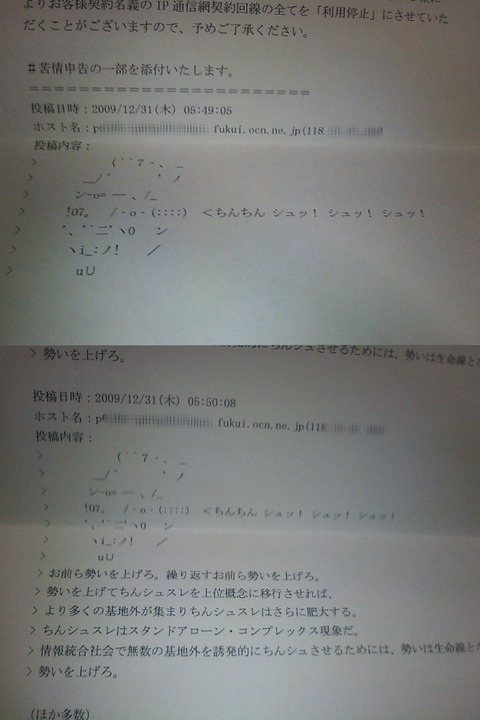 よりお客様契約名義の IP 通信網契約回線の全てを「利用停止」にさせていた
だくことがございますので、予めご了承ください。
#苦情申告の一部を添付いたします。
=======================
投稿日時:2009/12/31(木) 05:49:05
ホスト名:p fukui.ocn.ne.jp(118
投稿内容:
> (´´7‐、 _
> __/´ ' ノ
> ン=o= ― 、/_
> !07。 /‐o‐(::::) <ちんちん シュッ! シュッ! シュッ!
> '、'´二'ヽO ン
> ヽi_:ノ! /
> u∪
> 勢いを上げろ。 ちんシュさせるためには、勢いは生命線と
投稿日時:2009/12/31(木) 05:50:08
ホスト名:p fukui.ocn.ne.jp(118
投稿内容:
> (´´7‐、 _
> __/´ ' ノ
> ン=o= ― 、/_
> !07。 /‐o‐(::::) <ちんちん シュッ! シュッ! シュッ!
> '、'´二'ヽO ン
> ヽi_:ノ! /
> u∪
> お前ら勢いを上げろ。繰り返すお前ら勢いを上げろ。
> 勢いを上げてちんシュスレを上位概念に移行させれば、
> より多くの基地外が集まりちんシュスレはさらに肥大する。
> ちんシュスレはスタンドアローン・コンプレックス現象だ。
> 情報統合社会で無数の基地外を誘発的にちんシュさせるためには、勢いは生命線と
> 勢いを上げろ。
(ほか多数)